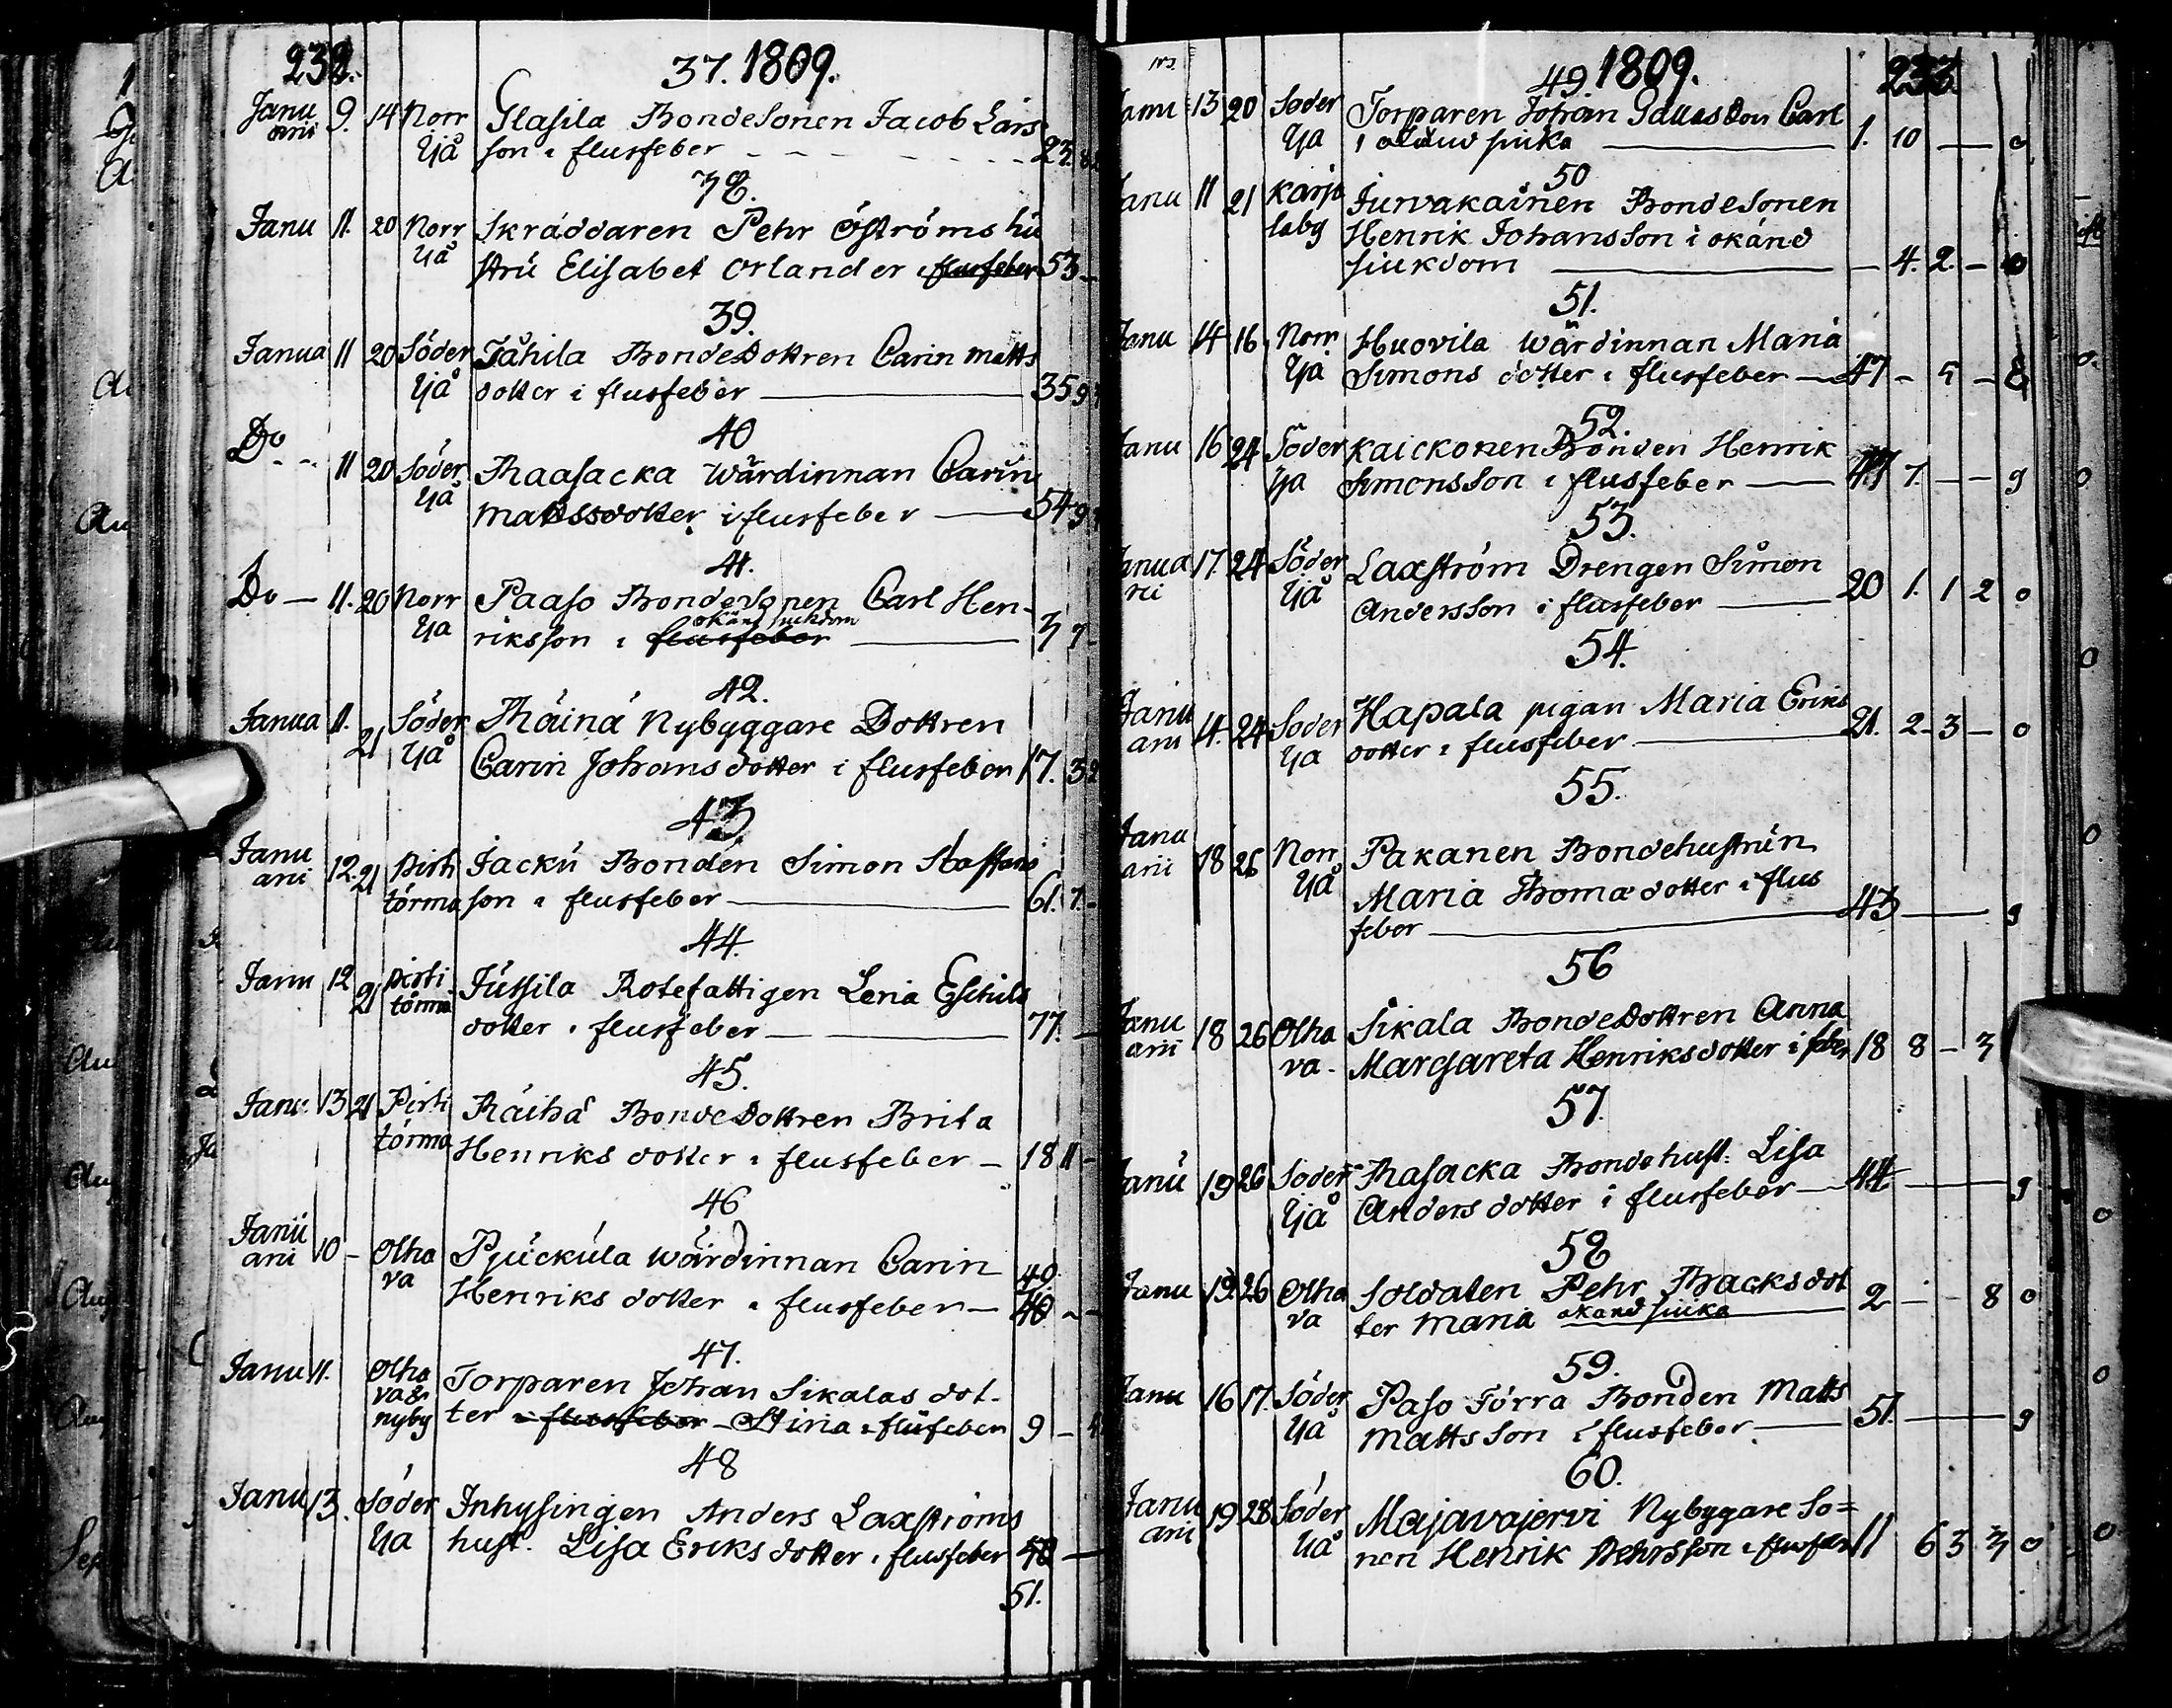 232. 37. 1809.
Janu arii 9. 14 Norr Ijå Glasila Bondesonen Jacob Lars
son i flusfeber 23. 8
38.
Janu 11. 20 Norr Ijå Skräddaren Pehr Öströms hu
stru Elisabet Orlander i flusfeber 53 -
39.
Janua 11 20 Söder Ijå Tähilä BondeDottren Carin Matts
dotter i flusfeber 35 9
40
Do 11 20 Söder Ijå Raasacka Wärdinnan Carin
Matssdotter i flusfeber 54 9
41.
Do 11. 20 Norr Ija Paaso Bondesonen Carl Hen-
okänd siukdom
riksson i flusfeber 3 7 -
42.
Janua 11. 21 Söder Ijå Räinä Nybyggare Dottren
Carin Johansdotter i flusfeber 17. 3 2
43
Janu arii 12. 21 Pirti törma Jackü Bonden Simon Staffans
son i flusfeber 61. 7. -
44.
Janu 12 21 Pirti törmä Jussila Rotefattigen Lena Eschils
dotter i flusfeber 77. -
45.
Janu: 13 21 Pirti törma Räihä BondeDottren Brita
Henriks dotter i flusfeber - 18 11 -
46
Janu arii 10 - Olha va Pjuckula Wärdinnan Carin
49.
Henriks dotter i flusfeber - 40 - -
47.
Janu 11. Olha va & nyby Torparen Johan Sikalas dot-
ter i flusfeber - Stina i flusfeber 9 - 4
48
Janu 13. Söder Ija Inhysingen Anders Laxströms
hust. Lisa Eriksdotter i flusfeber 50 -
51.
49. 1809. 233
Janu 13 20 Söder Ija Torparen Johan Son Carl
i okänd siuka 1. 10 - 0
50
Janu 11 21 Karja laby Jurvakainen Bondesonen
Henrik Johansson i okänd
siukdom - 4. 2. - 0
51.
Janu 14 16 Norr Ija Huovila Wärdinnan Maria
Simons dotter i flusfeber 47 - 5 - 8
52.
Janu 16 24 Söder Ija Kaickonen Bonden Henrik
Simonsson i flusfeber 47 7. - - 9
53.
Janua rii 17. 24 Söder Ijå Laxström Drengen Simon
Andersson i flusfeber 20 1. 1 2 0
54.
Janu arii 4. 24 Söder Ija Hapala pigan Maria Eriks
dotter i flusfeber 21. 2 - 3 - 0
55.
Janu arii 18 26 Norr Ijå Pakanen Bondehustrun
Maria Thomædotter i flus
feber 43 9
56
Janu arii 18 26 Olha va - Sikala BondeDottren Anna
Margareta Henriksdotter i feber 18 8 - 3
57.
Janu 19 26 Söder Ijå Rasacka Bondehust: Lisa
Anders dotter i flusfeber 44 9
58
Janu 19. 26 Olha va Soldaten Pehr Backs dot
ter Maria okänd siuka 2 - - 8 0
59.
Janu 16 17. Söder Ijå Paso Törrä Bonden Matts
Mattsson i flusfeber 51. 9
60.
Janu arii 19 28 Söder Ijå Majavajervi Nybygare So=
nen Henrik Pehrsson i flusfeber 11 6 3 3 0